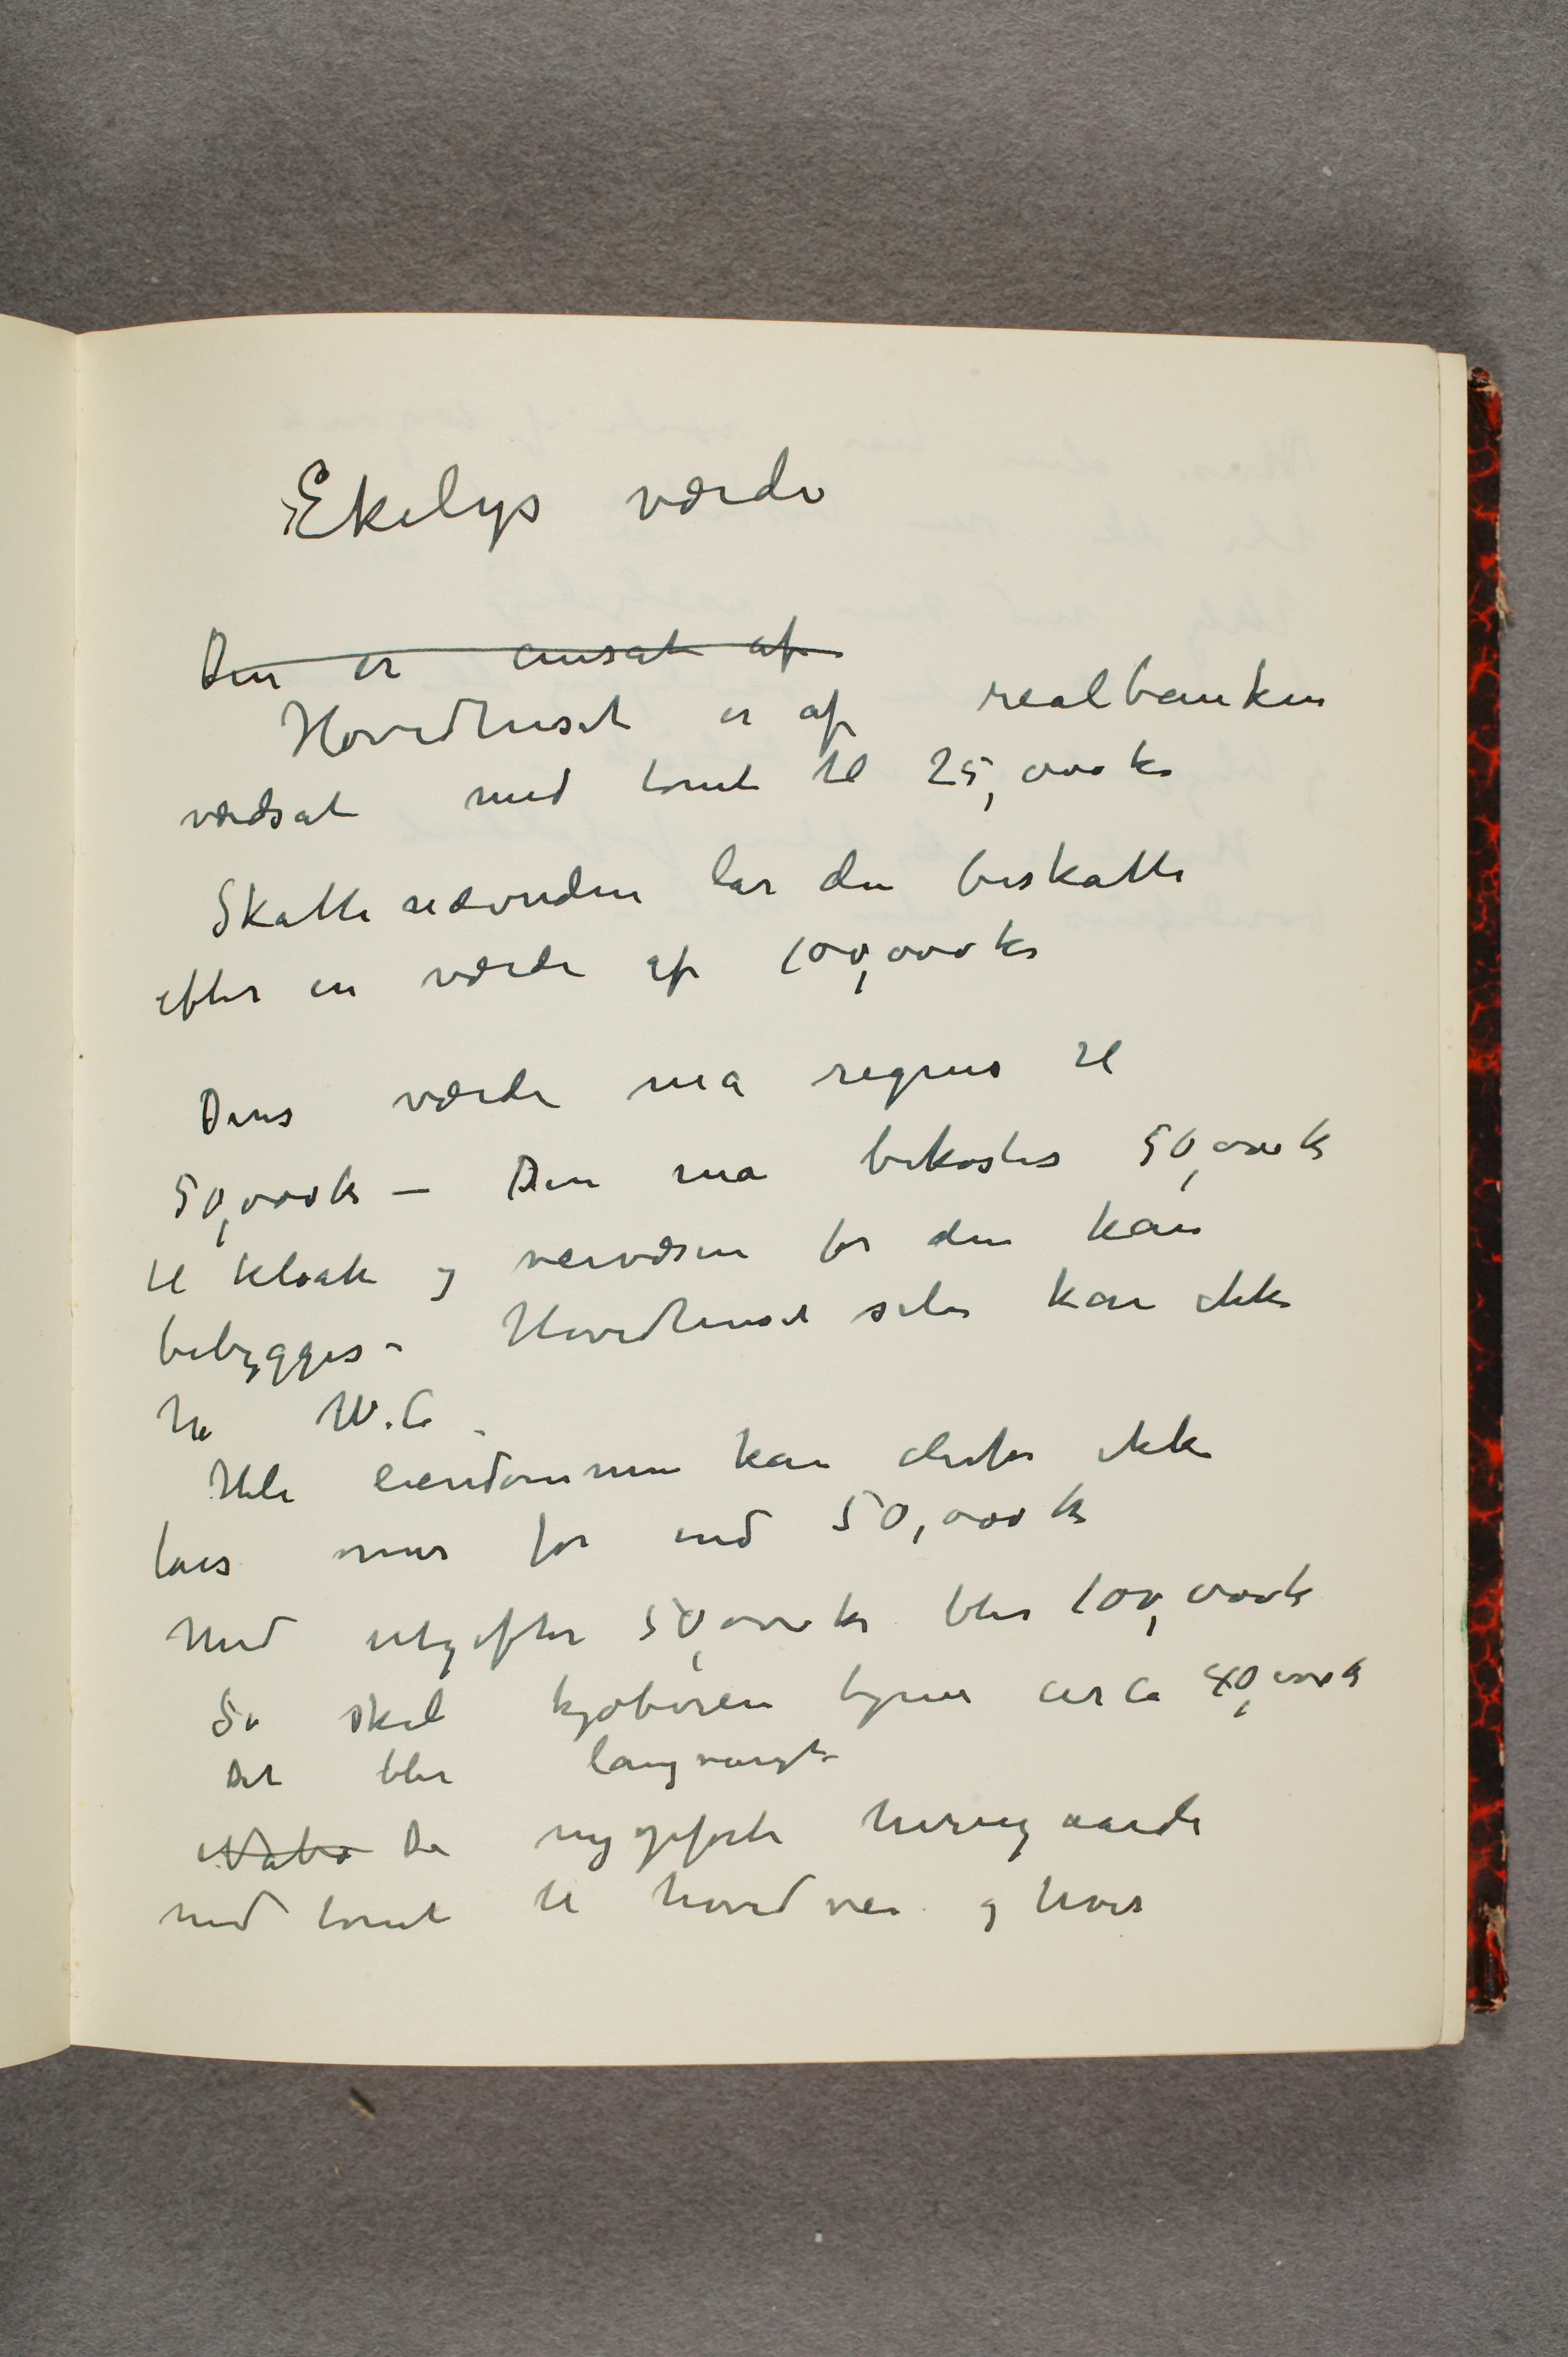 Ekelys værdi
Den er ansat af
Hovedhuset er af realbanken
værdsat med tomt til 25,000 kr
Skattenævnden lar den beskatte
efter en værdi af 100,000 kr
Dens værdi må regnes til
50,000 kr – Den må bekostes 50,000 kr
til kloak og veivæsen før den kan
bebygges – Hovedhuset selv kan ikke
ha W.C.
Hele eiendommen kan derfor ikke
taes mer for end 50,000 kr
Med utgifter 50,000 kr blir 100,000 kr
Så skal kjøberen tjene circa 40,000 kr
Det blir langvarigt
Nabo De nyopførte herregaarde
med tomt til hovedvei og hver